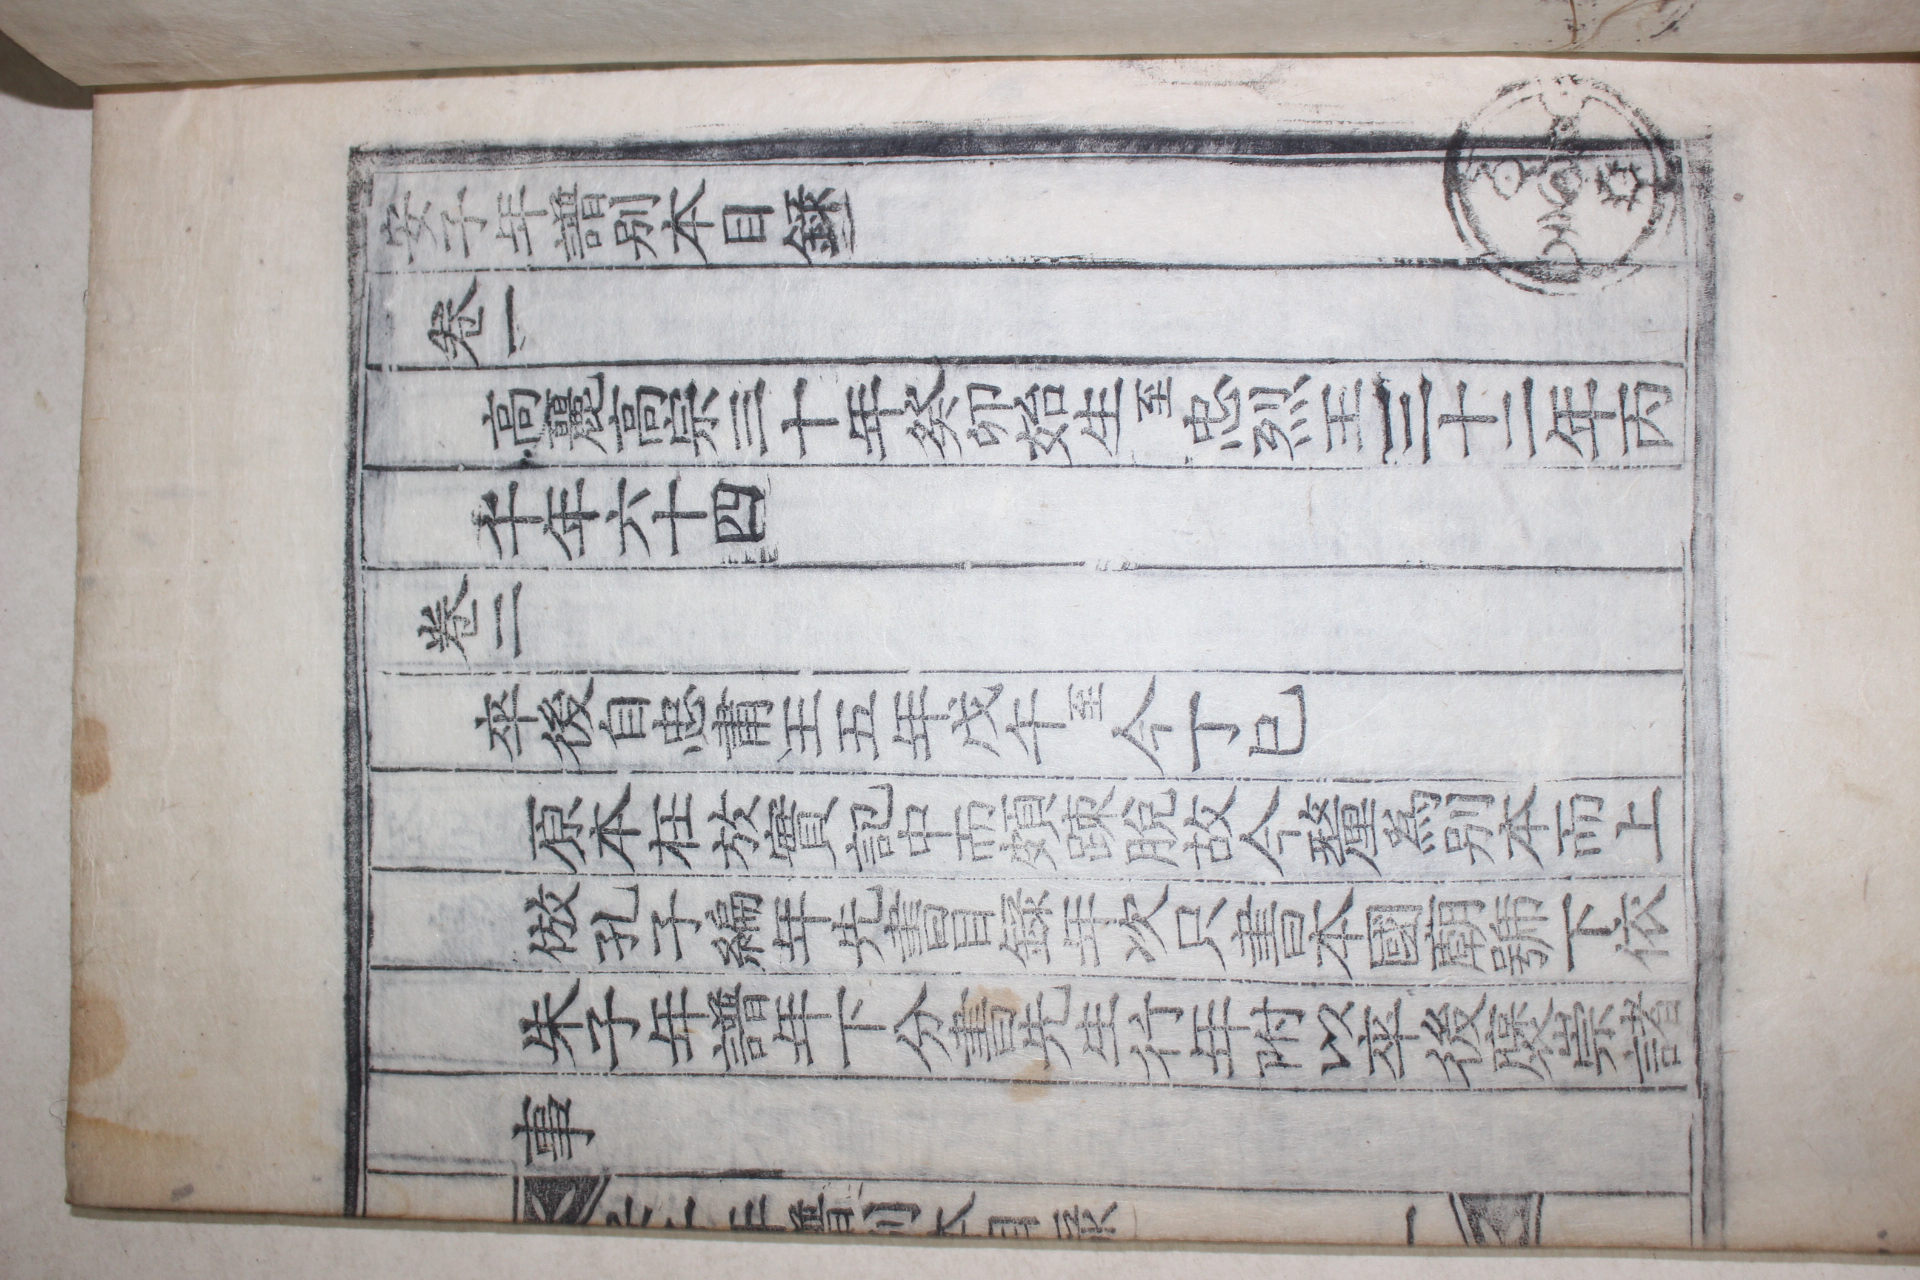 安子年譜別本目錄
卷一
高麗高宗三十年癸卯始生至忠烈王三十二年丙
午年六十四
卷二
卒後自忠肅王五年戊午至今丁巳
原本在於實記中而頗踈脫故今釐爲別本而上
倣孔子編年先書目錄年次只書本國廟號下依
朱子年譜年下分書先生行年附以卒後褒崇諸
事
安子年譜別本目錄
一